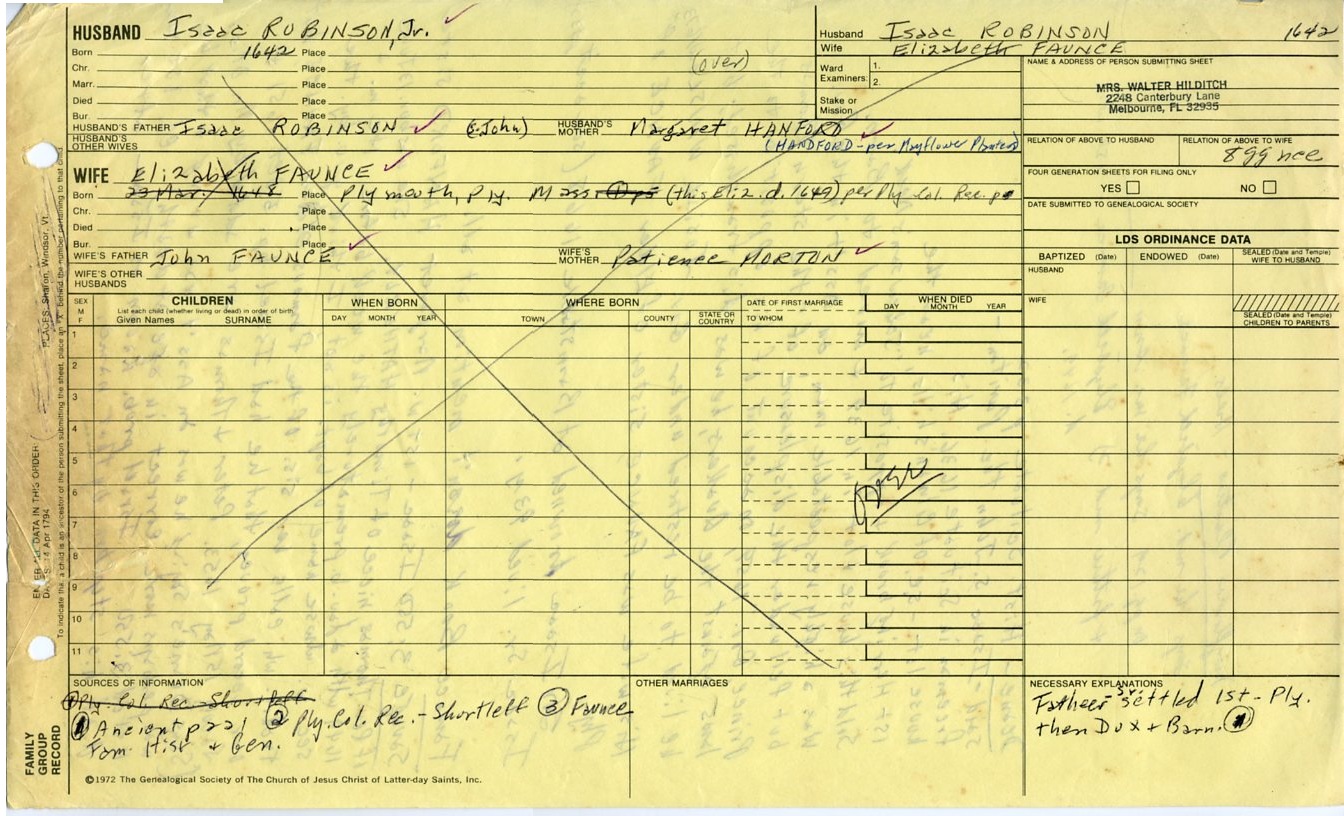 HUSBAND Isaac ROBINSON, Jr.
Born 1642 Place
Chr. Place
(over)
Marr. Place
Died Place
Bur. Place
HUSBAND'S FATHER Isaac ROBINSON (s. John) HUSBAND'S MOTHER Margaret HANFORD
HUSBAND'S OTHER WIVES (HANDFORD - per Mayflower Planters)
WIFE Elizabeth FAUNCE
Born 23 Mar. 1648 Place Plymouth, Ply. Mass. (this Eliz. d. 1649) per Ply Col. Rec. p
Chr. Place
Died Place
Bur. Place
WIFE'S FATHER John FAUNCE WIFE'S MOTHER Patience MORTON
WIFE'S OTHER HUSBANDS
Husband Isaac ROBINSON 1642
Wife Elizabeth FAUNCE
Ward Examiners: 1.
2.
Stake or Mission
NAME & ADDRESS OF PERSON SUBMITTING SHEET
MRS. WALTER HILDITCH
2248 Canterbury Lane
Melbourne, FL 32935
RELATION OF ABOVE TO HUSBAND RELATION OF ABOVE TO WIFE
8 gg nce
FOUR GENERATION SHEETS FOR FILING ONLY
YES NO
DATE SUBMITTED TO GENEALOGICAL SOCIETY
LDS ORDINANCE DATA
BAPTIZED (Date) ENDOWED (Date) SEALED (Date and Temple) WIFE TO HUSBAND
HUSBAND
WIFE
SEALED (Date and Temple) CHILDREN TO PARENTS
SEX M F
CHILDREN
List each child (whether living or dead) in order of birth
Given Names SURNAME
WHEN BORN
DAY MONTH YEAR
WHERE BORN
TOWN COUNTY STATE OR COUNTRY
DATE OF FIRST MARRIAGE
TO WHOM
WHEN DIED
DAY MONTH YEAR
1
2
3
4
5
6
7
8
9
10
11
over
SOURCES OF INFORMATION
1 Ply. Col. Rec - Shurtleff
1 Ancient p 221 2 Ply. Col. Rec. - Shurtleff 3 Faunce
Fam. Hist + Gen.
OTHER MARRIAGES
NECESSARY EXPLANATIONS
Father - Sr. settled 1st - Ply.
then Dux + Barn. 1
©1972 The Genealogical Society of The Church of Jesus Christ of Latter-day Saints, Inc.
FAMILY GROUP RECORD
ENTER ALL DATA IN THIS ORDER
14 Apr 1794
PLACES: Sharon, Windsor, Vt.